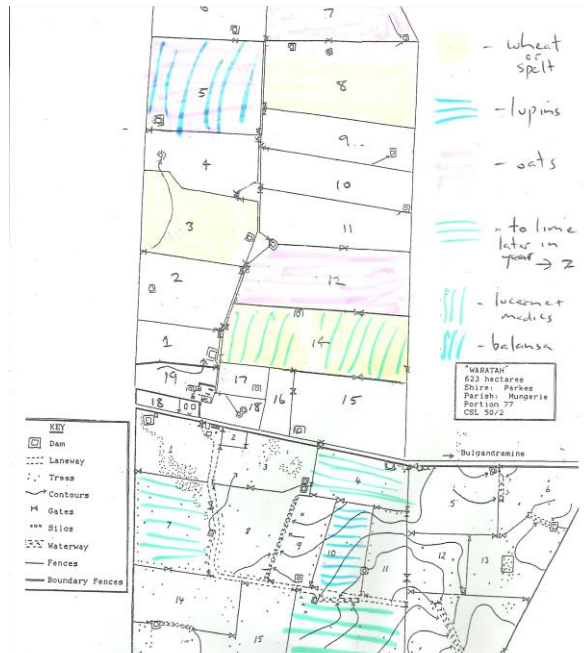 6
7
5
8
9
4
10
11
3
12
2
14
1
19
17
16
15
18
18
- wheat
or
spelt
- lupins
- oats
- to lime
later in
year → 2
- lucerne+
medics
- balansa
"WARATAH"
623 hectares
Shire: Parkes
Parish: Mungerie
Portion 77
CSL 50/2
Bulgandramine
KEY
Dam
Laneway
Trees
Contours
Gates
Silos
Waterway
Fences
Boundary Fences
1
2
3
4
5
6
7
8
9
10
11
12
13
14
15